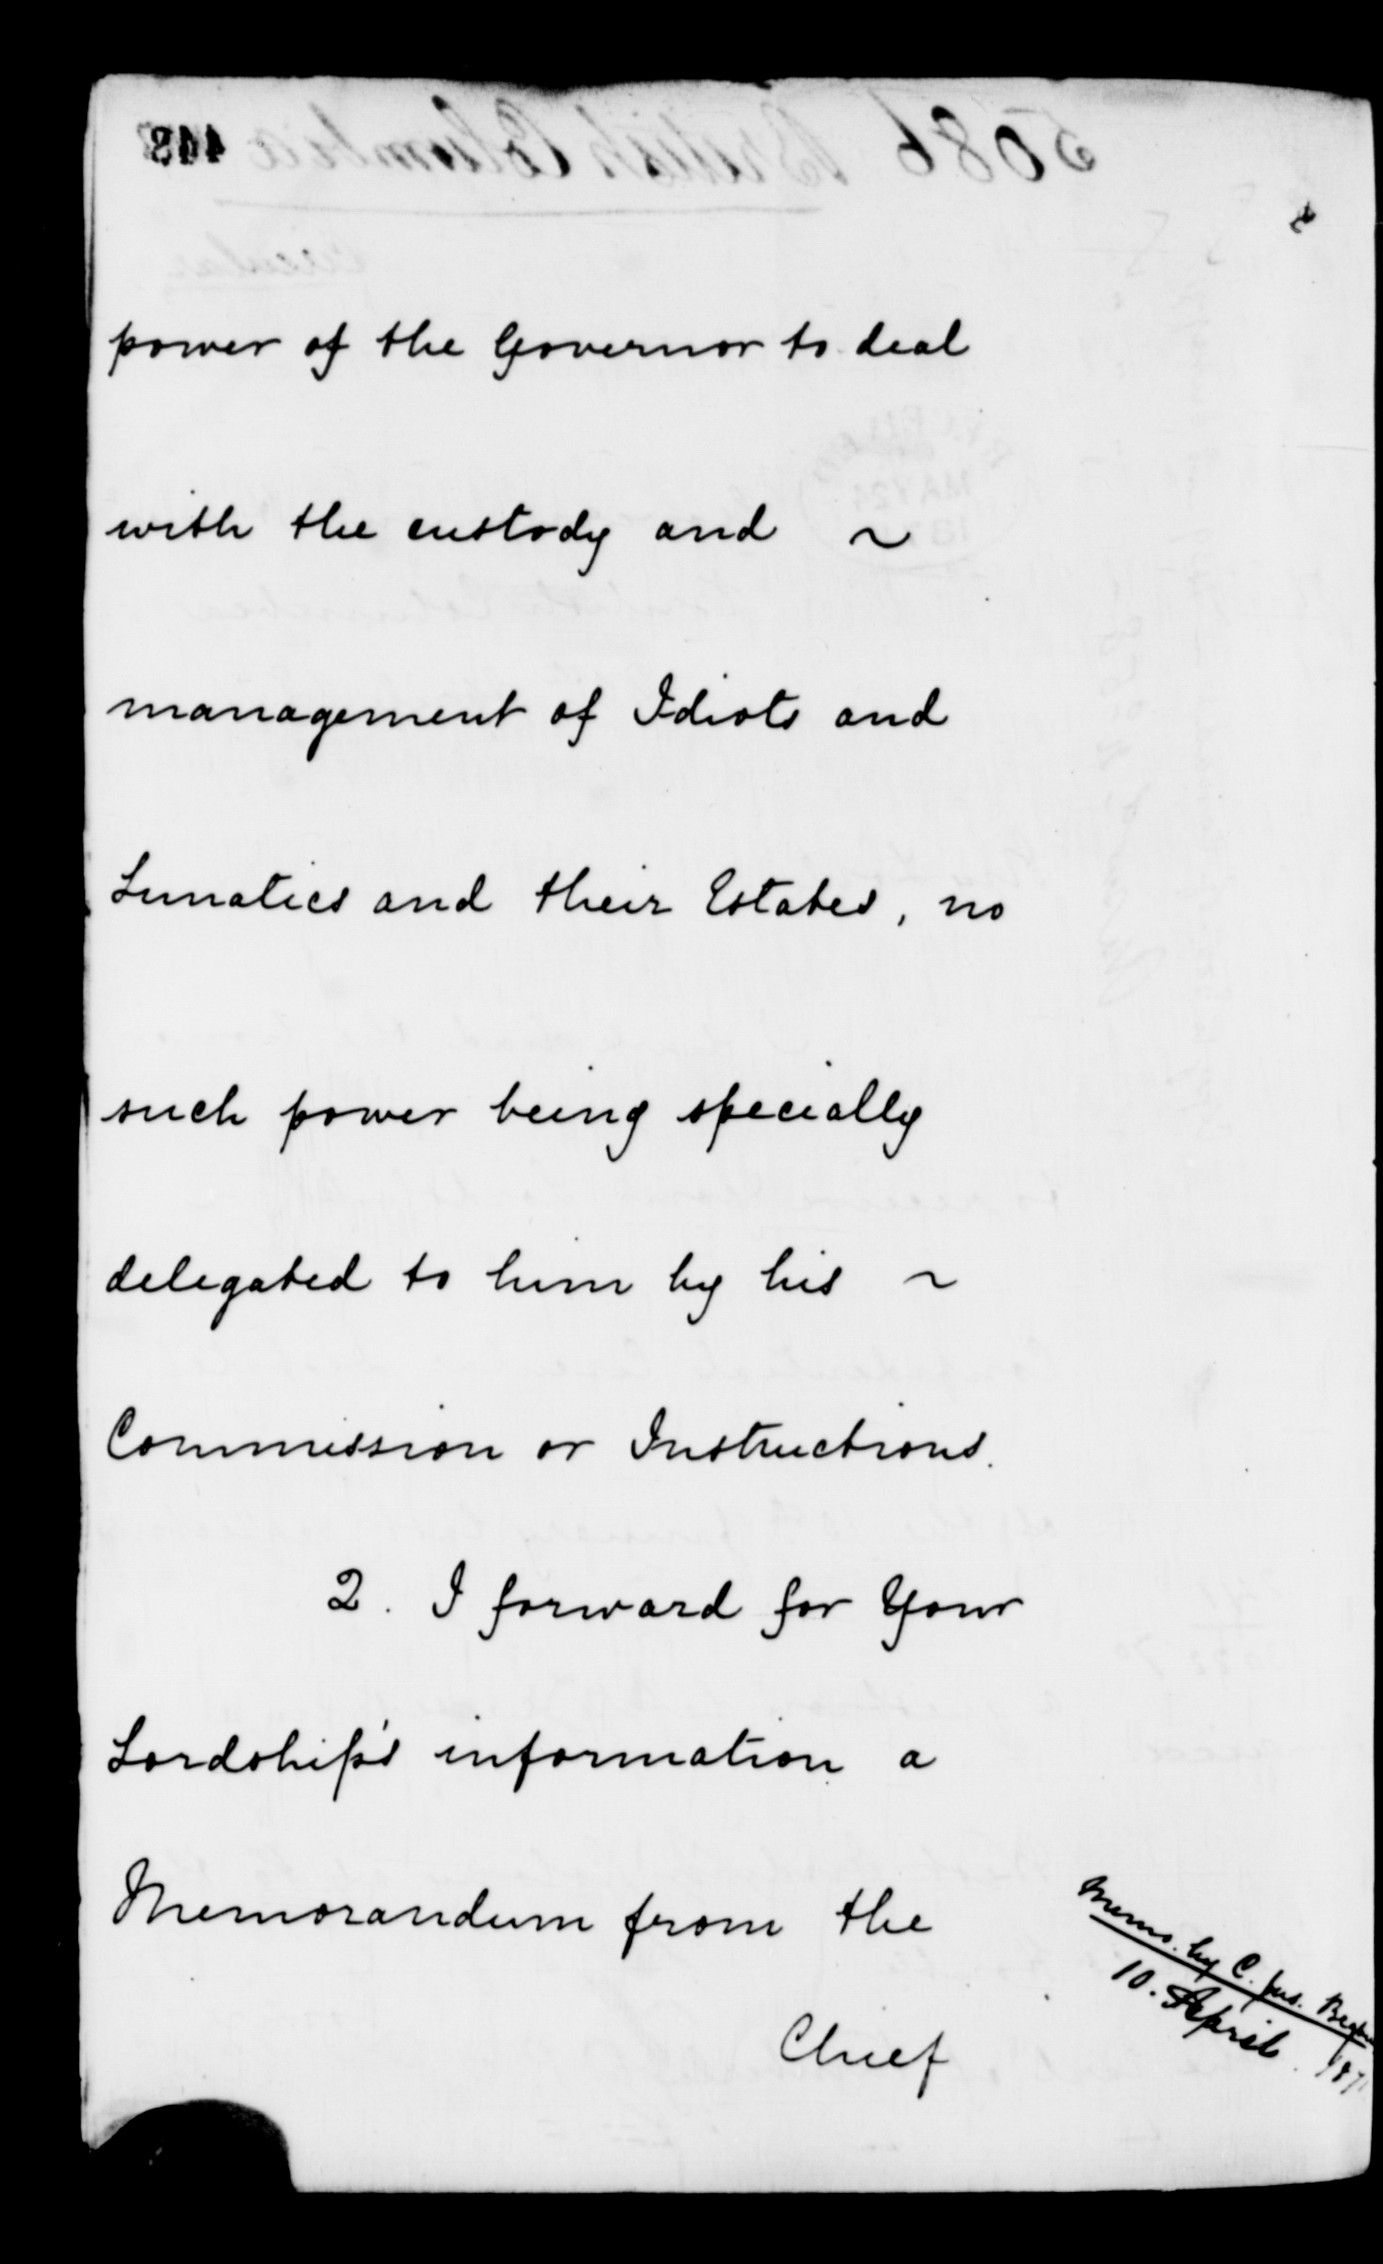 power of the Governor to deal
with the custody and ~
management of Idiots and
Lunatics and their Estates, no
such power being specially
delegated to him by his ~
Commission or Instructions.
2. I forward for Your
Lordship's information a
Memorandum from the
Chief
Memo. by C. Jus.
10. April. 187